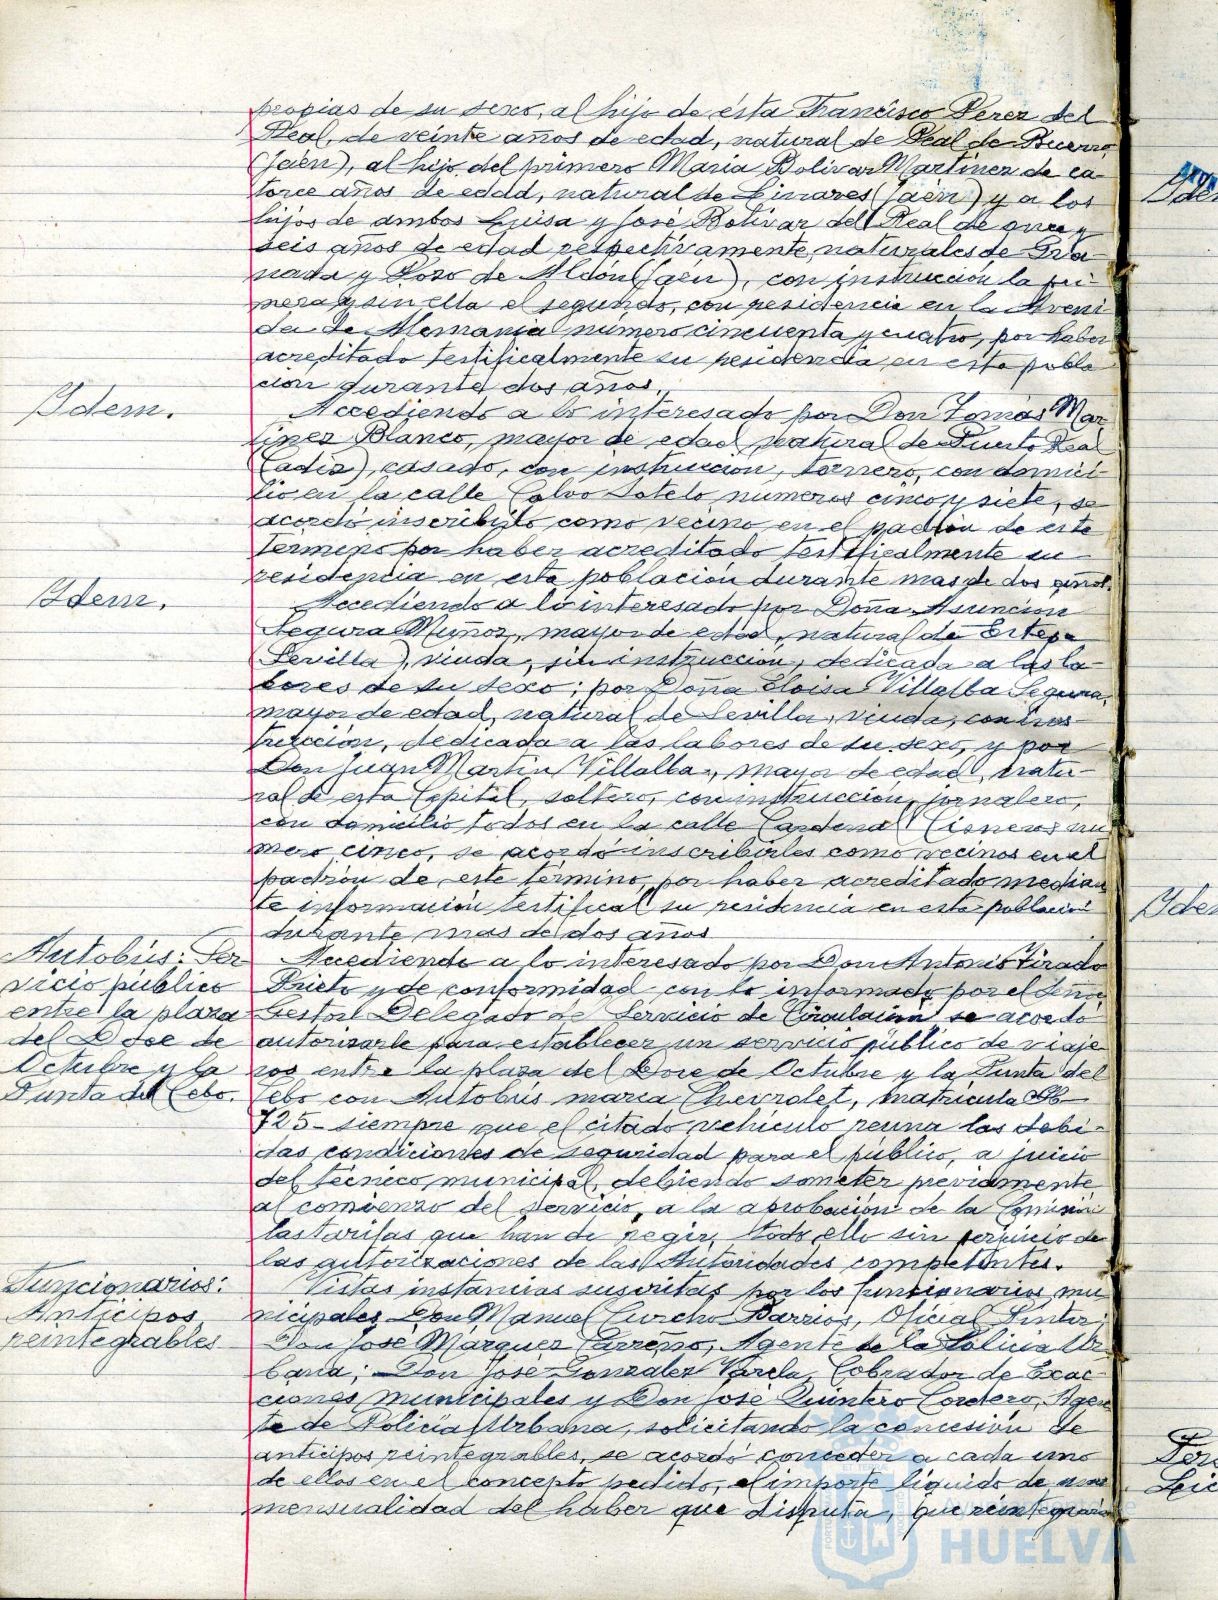 propias de su sexo, al hijo de ésta Francisco Perez del
Real, de veinte años de edad, natural de Peal de Becerro
(Jaén), al hijo del primero Maria Bolivar Martinez de ca-
torce años de edad, natural de Linares (Jaén) y a los
hijos de ambos Luisa y José Bolivar del Real de once y
seis años de edad respectivamente, naturales de Gra-
nada y Pozo de Aldón (Jaén), con instrucción la pri-
mera y sin ella el segundo, con residencia en la Aveni-
da de Alemania número cincuenta y cuatro, por haber
acreditado testificalmente su residencia en esta pobla
ción durante dos años.
Idem.
Accediendo a lo interesado por Don Tomás Mar-
tinez Blanco, mayor de edad, natural de Puerto Real
(Cadiz), casado, con instrucción, tornero, con domici-
lio en la calle Calvo Sotelo números cinco y siete, se
acordó inscribirlo como vecino en el padrón de este
término por haber acreditado testificalmente su
residencia en esta población durante mas de dos años.
Idem.
Accediendo a lo interesado por Doña Asunción
Segura Muñoz, mayor de edad, natural de Estepa
(Sevilla), viuda, sin instrucción, dedicada a las la-
bores de su sexo; por Doña Eloisa Villalba Segura,
mayor de edad, natural de Sevilla, viuda, con ins-
trucción, dedicada a las labores de su sexo, y por
Don Juan Martin Villalba, mayor de edad, natu-
ral de esta Capital, soltero, con instrucción, jornalero,
con domicilio todos en la calle Cardenal Cisneros nu
mero cinco, se acordó inscribirles como vecinos en el
padrón de este término, por haber acreditado median
te información testifical su residencia en esta población
durante mas de dos años
Autobús: Ser
vicio público
entre la plaza
del Doce de
Octubre y la
Punta del Sebo.
Accediendo a lo interesado por Don Antonio Tirado
Prieto y de conformidad con lo informado por el Señor
Gestor Delegado de Servicio de Circulación se acordó
autorizarle para establecer un servicio público de viaje-
ros entre la plaza del Doce de Octubre y la Punta del
Sebo con Autobús marca Chevrolet, matrícula
725- siempre que el citado vehículo reuna las debi-
das condiciones de seguridad para el público, a juicio
del técnico municipal, debiendo someter previamente
al comienzo del servicio, a la aprobación de la Comisión
las tarifas que han de regir, todo ello sin perjuicio de
las autorizaciones de las Autoridades competentes.
Funcionarios:
Anticipos
reintegrables
Vistas instancias suscritas por los funcionarios mu
nicipales Don Manuel Curcho Barrios, Oficial Pintor;
Don José Márquez Carreño, Agente de la Policia Ur-
bana; Don José Gonzalez Varela, Cobrador de Exac-
ciones Municipales y Don José Quintero Cordero, Agen
te de Policia Urbana, solicitando la concesión de
anticipos reintegrables, se acordó conceder a cada uno
de ellos en el concepto pedido, el importe líquido de una
mensualidad del haber que disfruta, que reintegrarán
HUELVA